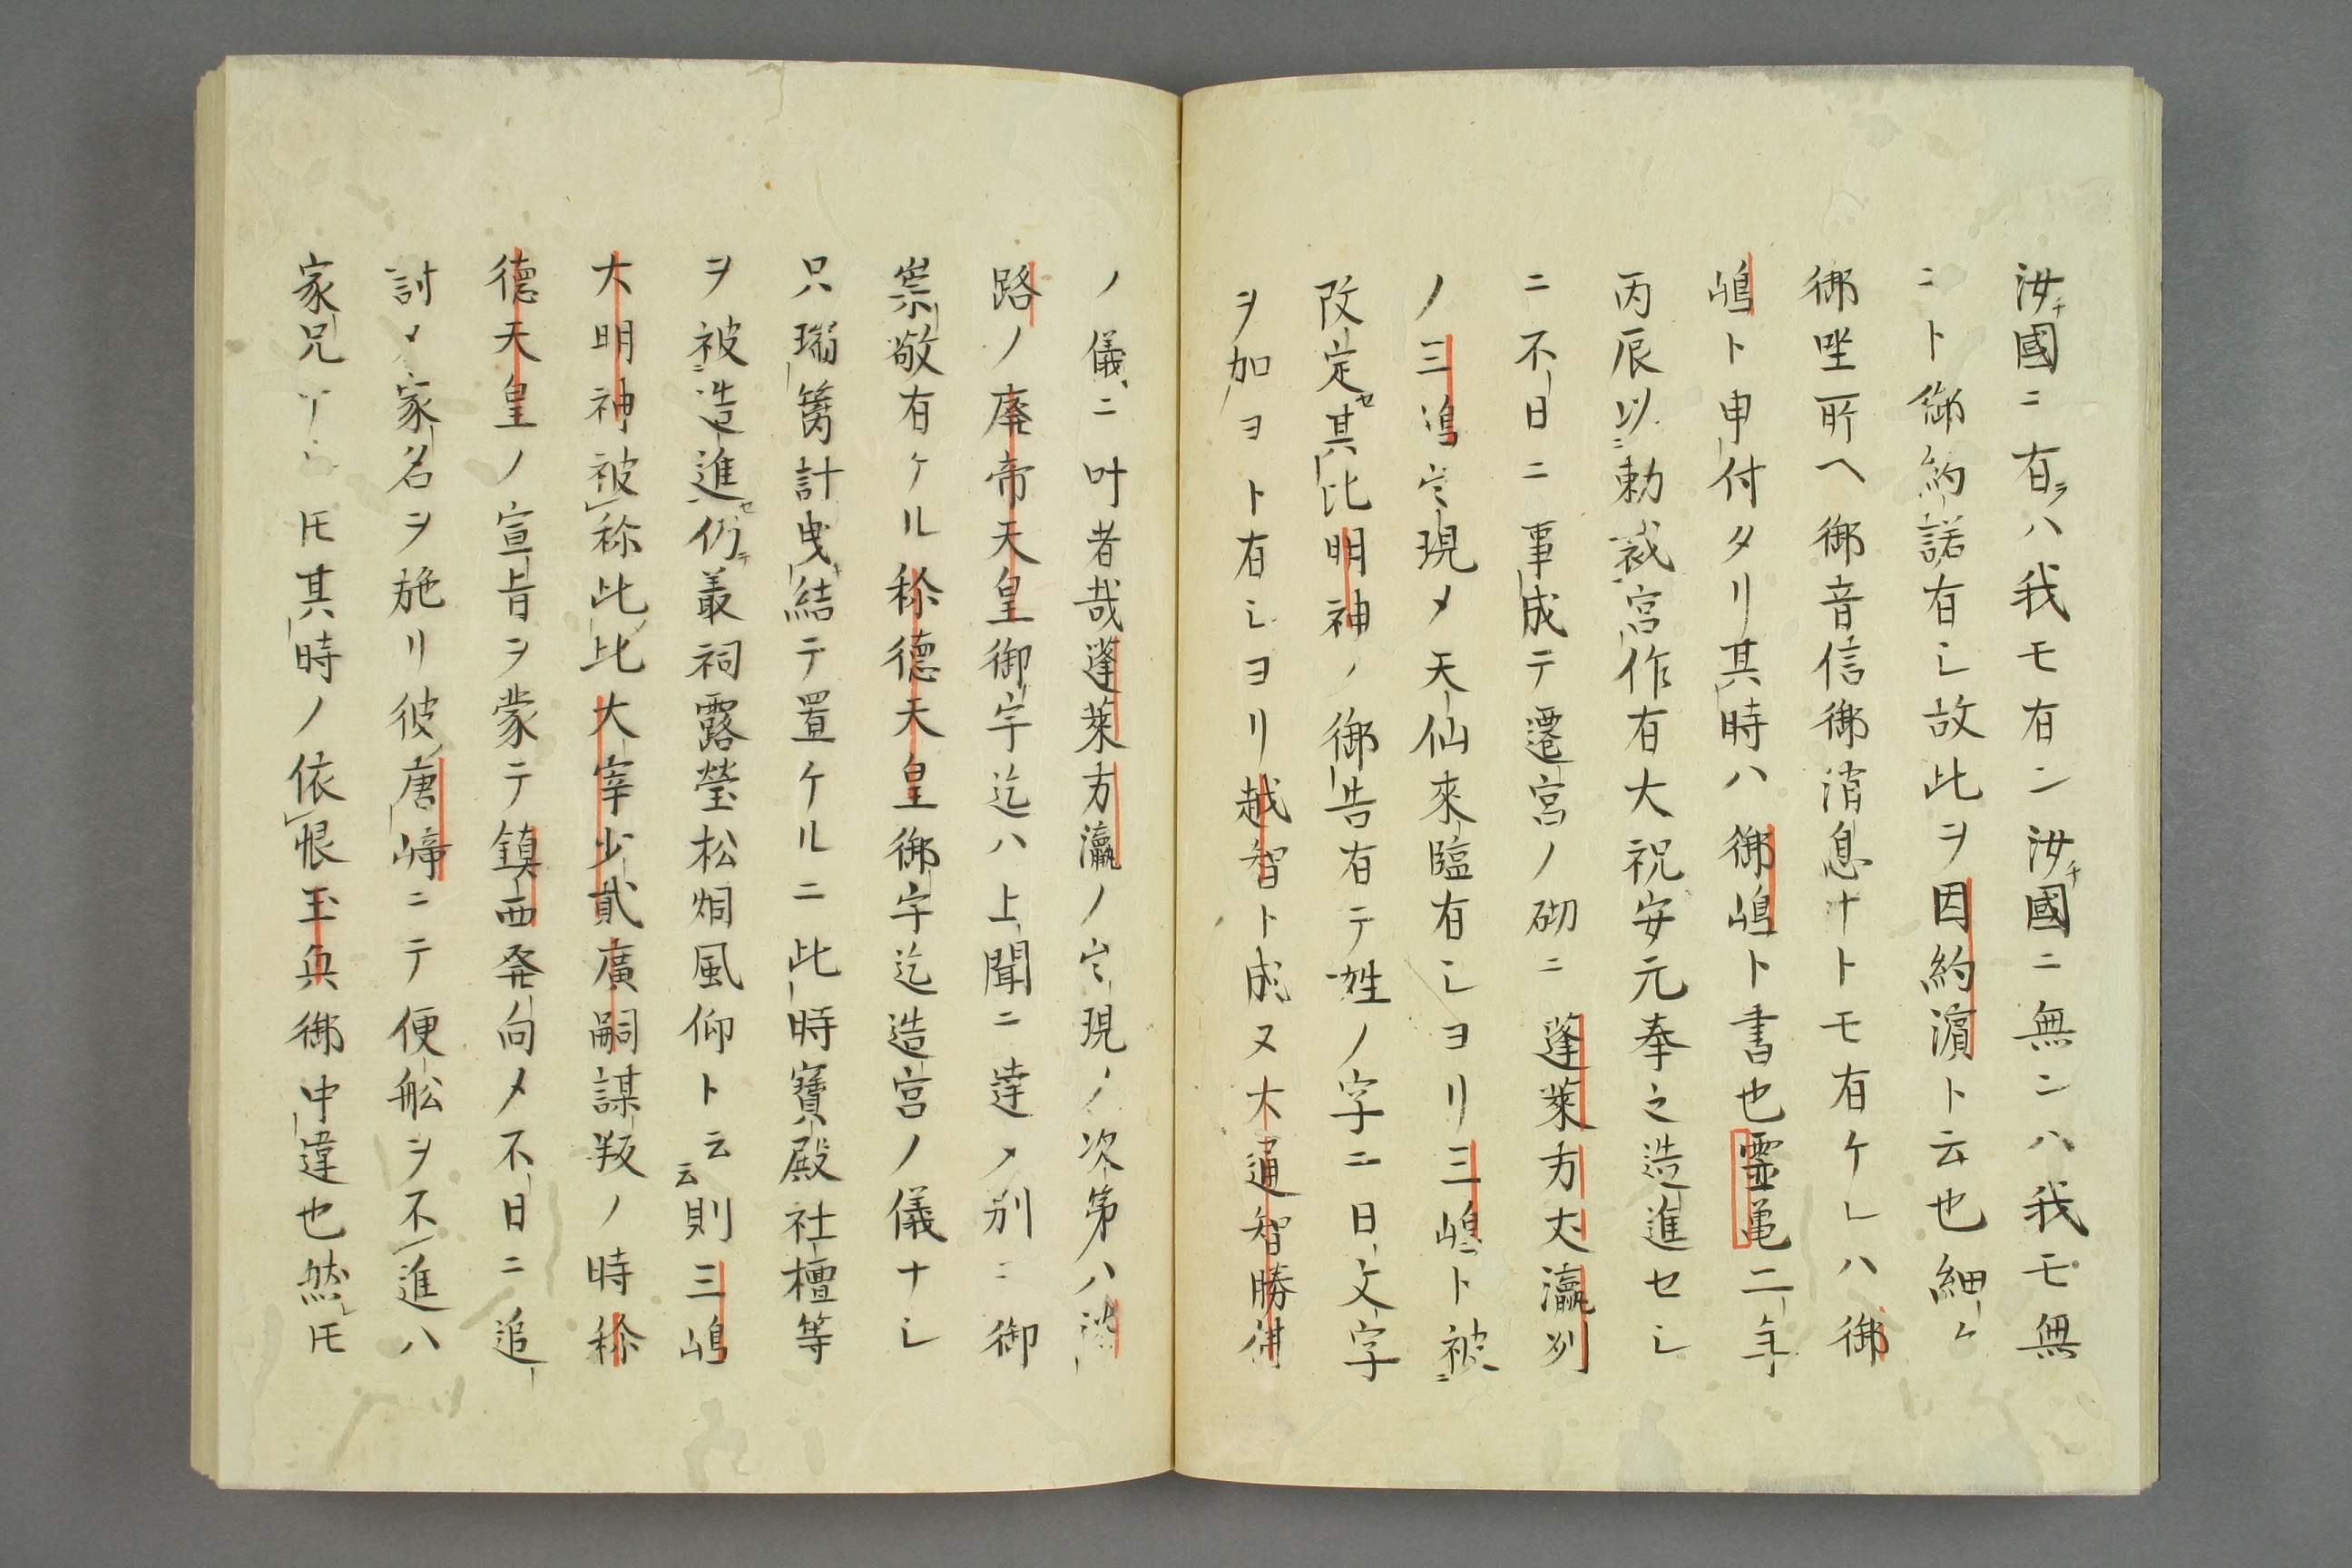 汝チ國ニ有ラハ我モ有ン汝チ國ニ無ンハ我モ無
ニト御約諾有シ故此ヲ因約濵ト云也細ケ
御㘴所ヘ御音信御消息ナトモ有ケレハ御
嶋ト申付タリ其時ハ御嶋ト書也霊亀二年
丙辰以ニ勅裁宮作有大祝安元奉之造進セシ
ニ不日ニ事成テ遷宮ノ砌ニ蓬萊方丈瀛列
ノ三嶋ヲ現メ天仙來臨有シヨリ三嶋ト被ニ
改定セ其比明神ノ御告有テ姓ノ字ニ日文字
ヲ加ヨト有シヨリ越智ト成又大通智勝佛
ノ儀ニ叶者哉蓬萊方瀛ノ現ノ次第ハ淡
路ノ廃帝天皇御宇迄ハ上聞ニ達メ別ニ御
崇敬有ケル称德天皇御宇迄造宮ノ儀ナシ
只瑞籬計曳結テ置ケルニ此時寶殿社檀等
ヲ被ニ造進セ仍テ叢祠露瑩松烱風仰ト云云則三嶋
大明神被称此比大宰少貳廣嗣謀叛ノ時称
德天皇ノ宣旨ヲ蒙テ鎮西発向メ不日ニ追
討メ家名ヲ施リ彼唐崎ニテ便舩ヲ不進ハ
家兄ナレ𪜈其時ノ依恨玉興御中違也然レ𪜈